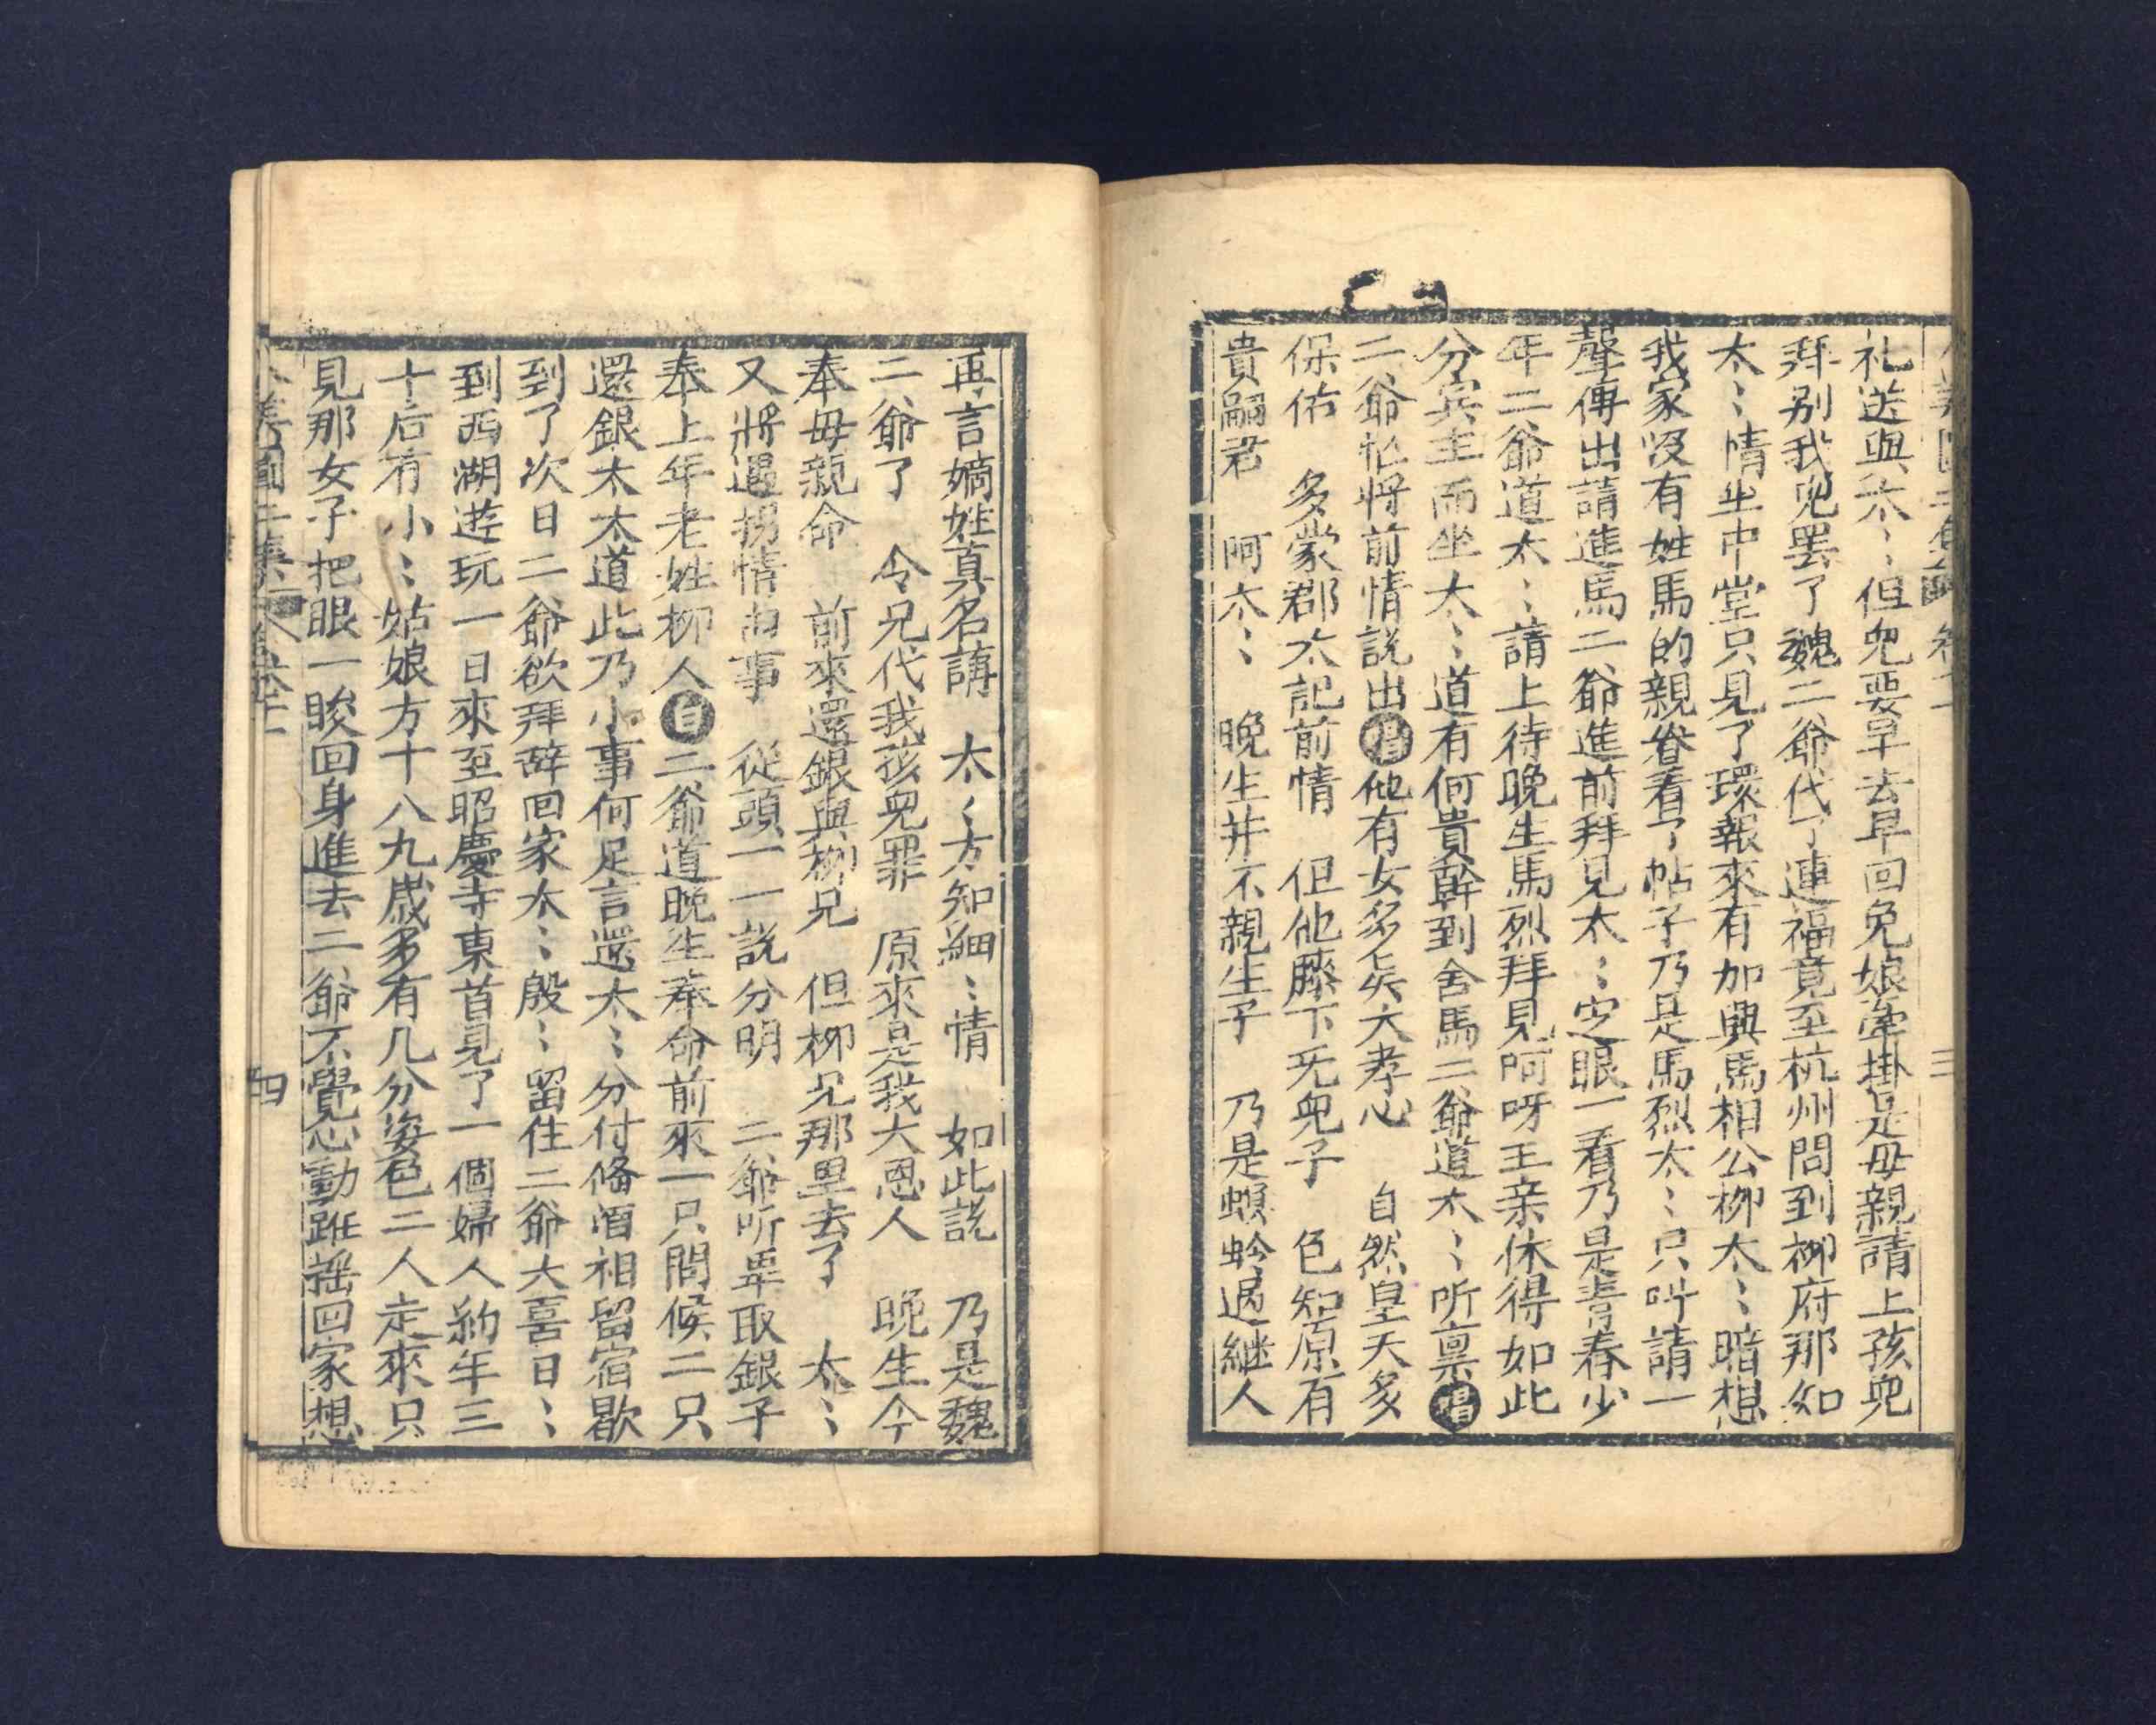 礼送與太〻但兒要早去早回免娘牽掛是毋親請上孩兒
拜别我兒罢了魏二爺代了連福竟至杭州問到柳府那知
太〻情坐中堂只見了環報來有加興馬相公柳太〻暗想
我家没有姓馬的親眷看了帖子乃是馬烈太〻只叫請一
聲傳出請進馬二爺進前拜見太〻定眼一看乃是青春少
年二爺道太〻請上待晚生馬烈拜見呵呀王亲休得如此
分宾主而坐太〻道有何貴幹到舍馬二爺道太〻听禀唱
二爺忙將前情説出唱他有女多矣大孝心 自然皇天多
保佑 多蒙郡太記前情 但他膝下旡兒子 色知原有
貴嗣君 呵太〻 晚生并不親生子 乃是螟蛉過継人
三
再言嫡姓真名講 太〻方知細〻情 如此説 乃是魏
二爺了 令兄代我孩兒罪 原來是我大恩人 晚生今
奉毋親命 前來還銀與柳兄 但柳兄那里去了 太〻
又將遇拐情由事 從頭一一説分明 二爺听畢取銀子
奉上年老姓柳人白二爺道晚生奉命前來一只問候二只
還銀太太道此乃小事何足言還太〻分付俻酒相留宿歇
到了次日二爺欲拜辞回家太〻殷〻留住二爺大喜日〻
到西湖逰玩一日來至昭慶寺東首見了一個婦人約年三
十后有小〻姑娘方十八九歲多有几分姿色二人走來只
見那女子把眼一睃回身進去二爺不覺心動踱揺回家想
四